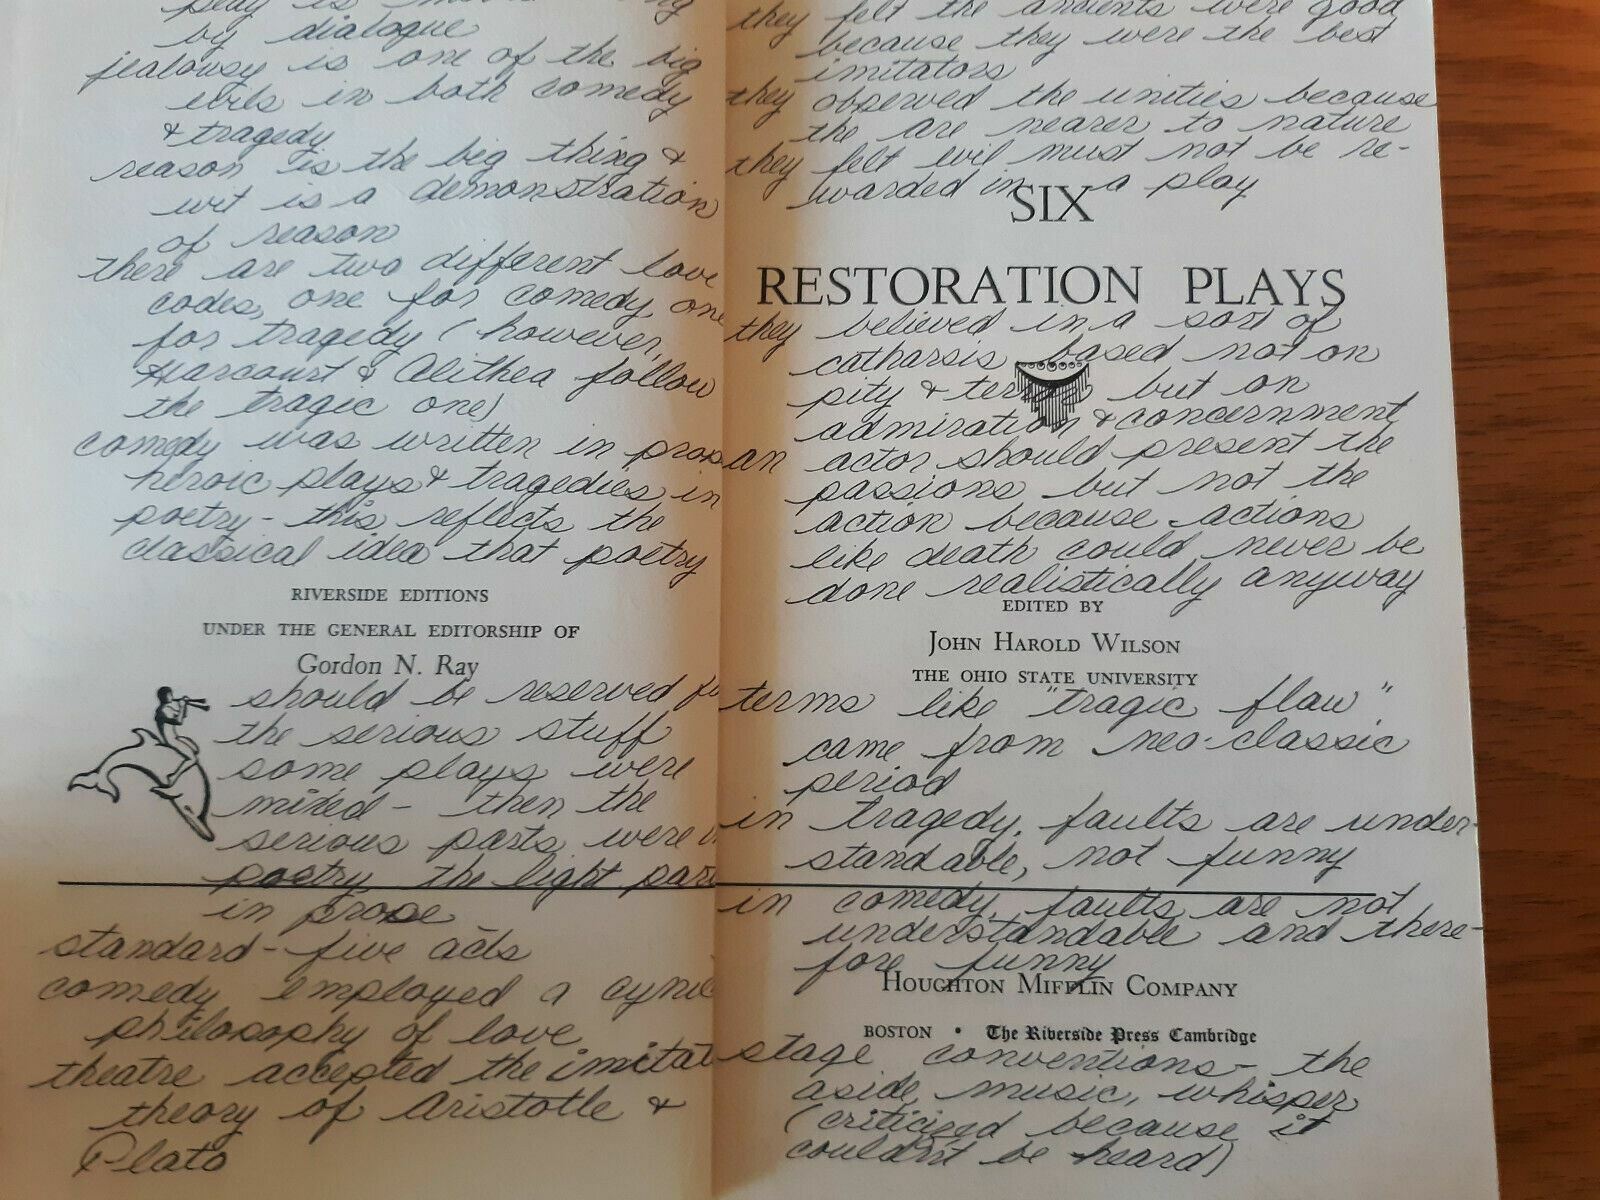 play is
by dialogue
jealousy is one of the big
evils in both comedy
& tragedy
reason is the big thing &
wit is a demonstration
of reason
there are two different love
codes, one for comedy, one
for tragedy (however,
Harcourt & Alithea follow
the tragic one)
comedy was written in prose
heroic plays & tragedies in
poetry - this reflects the
classical idea that poetry
RIVERSIDE EDITIONS
UNDER THE GENERAL EDITORSHIP OF
Gordon N. Ray
should be reserved for
the serious stuff
some plays were
mixed - then the
serious parts were in
poetry, the light parts
in prose
standard - five acts
comedy employed a cynic
philosophy of love
theatre accepted the imitat
theory of Aristotle &
Plato
they felt the ancients were good
because they were the best
imitators
they observed the unities because
the are nearer to nature
they felt evil must not be re-
warded in a play
SIX
RESTORATION PLAYS
they believed in a sort of
catharsis based not on
pity & terror but on
admiration & concernment
an actor should present the
passions but not the
action because actions
like death could never be
done realistically anyway
EDITED BY
JOHN HAROLD WILSON
THE OHIO STATE UNIVERSITY
terms like "tragic flaw"
came from neo-classic
period
in tragedy, faults are under-
standable, not funny
in comedy, faults are not
understandable and there-
fore funny
HOUGHTON MIFFLIN COMPANY
BOSTON • The Riverside Press Cambridge
stage conventions - the
aside, music, whisper
(criticized because it
couldn't be heard)